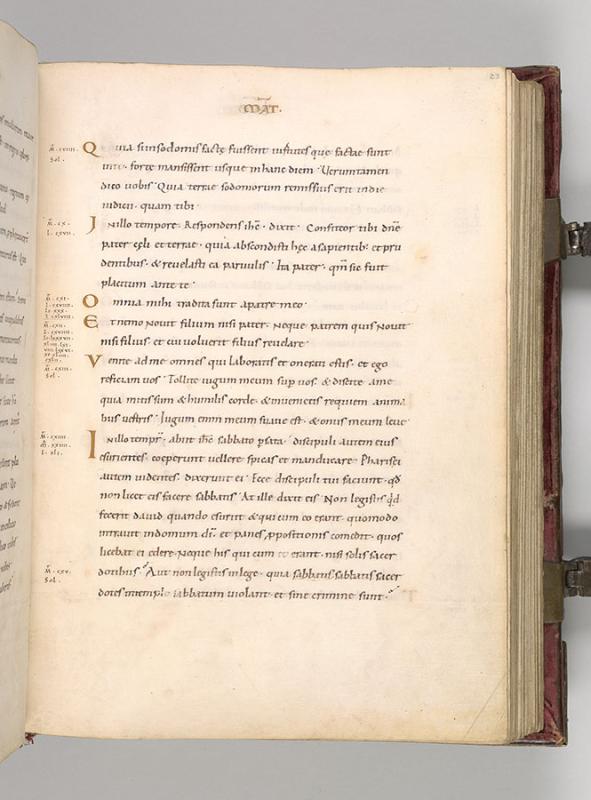 23
MAT.
Quia si in sodomis factę fuissent uirtutes que factae sunt
in te. forte mansissent usque in hanc diem. Uerumtamen
dico uobis. Quia terrae sodomorum remissius erit in die
iudicii. quam tibi.
m. cx.
l. cxviii.
In illo tempore. Respondens ihc. dixit. Confiteor tibi dne
pater cęli et terrae. quia abscondisti hęc a sapientib; et pru
dentibus. & reuelasti ea paruulis. Ita pater. qm̄ sic fuit
placitum ante te.
m. cxi.
Omnia mihi tradita sunt a patre meo.
m. cxii.
Et nemo nouit filium nisi pater. Neque patrem quis nouit
nisi filius. et cui uoluerit filius reuelare.
m. cxiii.
Sol.
Uenite ad me omnes qui laboratis et onerati estis. et ego
reficiam uos. Tollite iugum meum sup uos. & discite a me
quia mitis sum & humilis corde. & inuenietis requiem anima
bus uestris. Iugum enim meum suaue est. & onus meum leue.
m. cxiiii.
In illo tempr. abiit ihc sabbato p sata. discipuli autem eius
esurientes. coeperunt uellere spicas et manducare. Pharisei
autem uidentes. dixerunt ei. Ecce discipuli tui faciunt. qd
non licet eis facere sabbatis. At ille dixit eis. Non legistis qd
fecerit dauid quando esuriit & qui cum eo erant. quomodo
intrauit in domum di. et panes ppositionis comedit. quos
licebat ei edere. Neque his qui cum eo erant. nisi solis sacer
m. cxv.
Sol.
dotibus. Aut non legistis in lege. quia sabbatis sabbatis sacer
dotes in templo sabbatum uiolant. et sine crimine sunt.